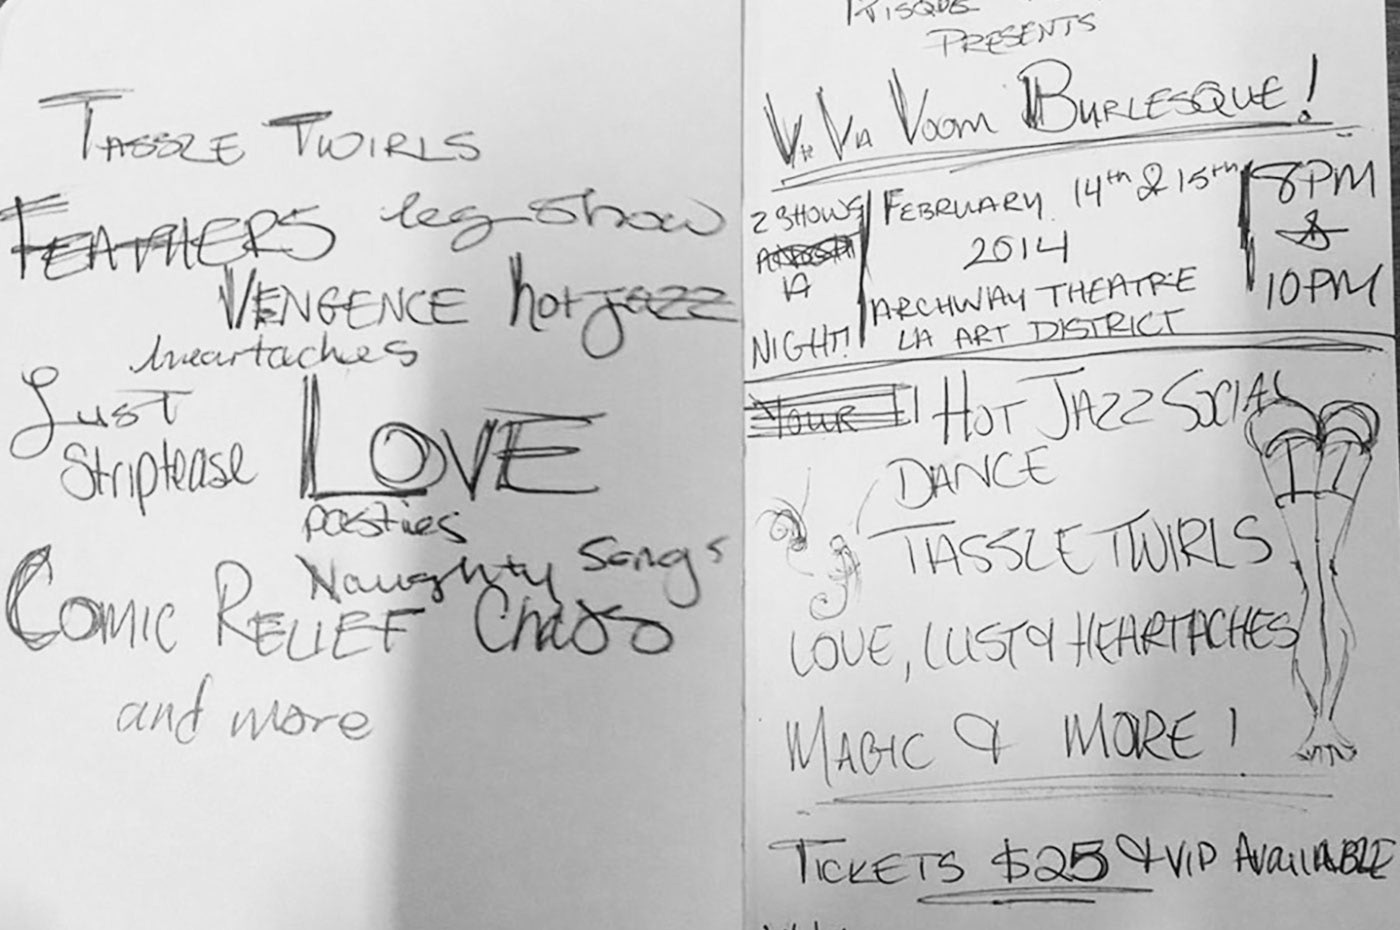 TASSLE TWIRLS
FEATHERS leg show
VENGENCE hot jazz
heartaches
Lust
LOVE
Striptease
pasties
Naughty Songs
COMIC RELIEF Chaos
and more
RISQUE
PRESENTS
Va Va Voom BURLESQUE!
2 SHOWS
A
NIGHT!
FEBRUARY 14th & 15th
2014
ARCHWAY THEATRE
LA ART DISTRICT
8PM
&
10PM
YOUR
HOT JAZZ SOCIAL
DANCE
TASSLE TWIRLS
LOVE, LUST & HEARTACHES
MAGIC & MORE!
TICKETS $25 & VIP AVAILABLE